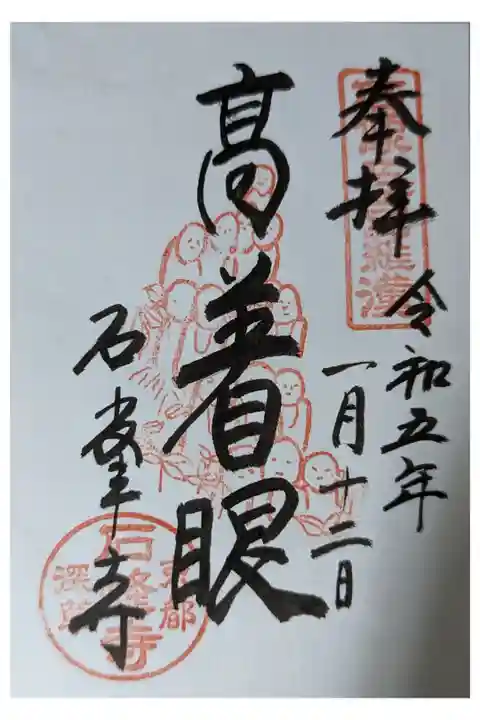 奉拝
令和五年
一月十二日
高着眼
石峯寺
京都
石峰寺
深草